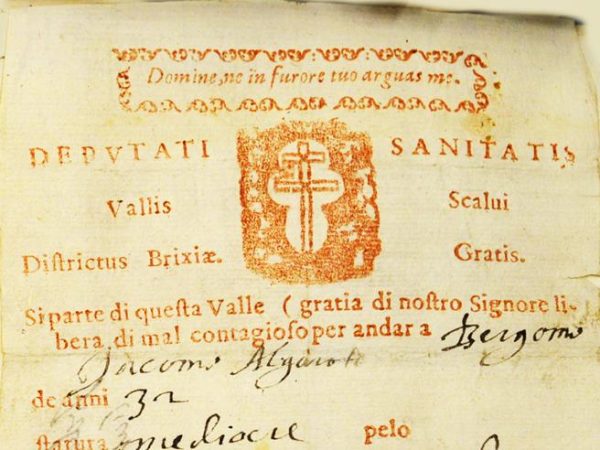 Domine, ne in furore tuo arguas me.
DEPVTATI SANITATIS
Vallis Scalui
Districtus Brixiæ. Gratis.
Si parte di questa Valle ( gratia di nostro Signore li-
bera, di mal contagioso per andar a Bergomo
Jacomo
de anni 32
statura mediocre pelo